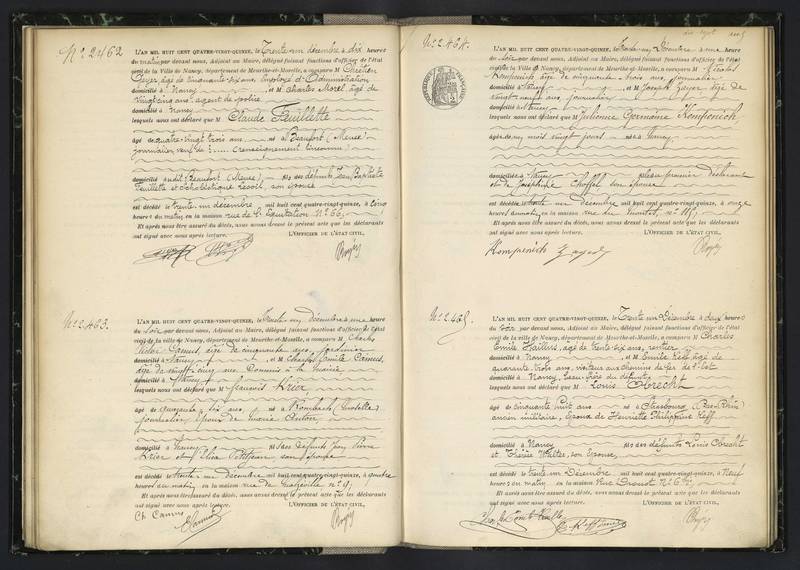 Nº 2462
L'AN MIL HUIT CENT QUATRE-VINGT-QUINZE, le Trente un décembre à dix heures
du matin par devant nous, Adjoint au Maire, délégué faisant fonctions d'officier de l'état
civil de la Ville de Nancy, département de Meurthe-et-Moselle, a comparu M Chrétien
âgé de cinquante six ans, employé d'administration
domicilié à Nancy et M Charles Morel âgé de
vingt cinq ans agent de police
domicilié à Nancy
lesquels nous ont déclaré que M Claude Feuillette
âgé de quatre-vingt trois ans né à Beaufort (Meuse)
journalier, veuf de ?..... (renseignement inconnu)
domicilié audit Beaufort (Meuse), fils des défunts Jean Baptiste
Feuillette et son épouse
est décédé le trente un décembre mil huit cent quatre-vingt-quinze, à cinq
heures du matin, en la maison rue de l'Equitation Nº 66,
Et après nous être assuré du décès, nous avons dressé le présent acte que les déclarants
ont signé avec nous après lecture. L'OFFICIER DE L'ÉTAT CIVIL,
Nº 2463.
L'AN MIL HUIT CENT QUATRE-VINGT-QUINZE, le Trente un décembre à une heure
du soir par devant nous, Adjoint au Maire, délégué faisant fonctions d'officier de l'état
civil de la ville de Nancy, département de Meurthe-et-Moselle, a comparu M Charles
Victor Camus, âgé de cinquante ans, jardinier
domicilié à Nancy et M Charles Emile Camus,
âgé de vingt cinq ans Commis à la mairie
domicilié à Nancy
lesquels nous ont déclaré que M François Krier
âgé de Cinquante six ans né à Rombach (Moselle)
journalier époux de Marie Anton
domicilié à Nancy fils des défunts Jean Pierre
Krier et Petitjean son épouse
est décédé le trente un décembre mil huit cent quatre-vingt-quinze, à quatre
heures du matin, en la maison rue de Malzéville nº 9,
Et après nous être assuré du décès, nous avons dressé le présent acte que les déclarants
ont signé avec nous après lecture. L'OFFICIER DE L'ÉTAT CIVIL,
Ch Camus E Camus
Nº 2464.
L'AN MIL HUIT CENT QUATRE-VINGT-QUINZE, le Trente un Décembre à une heure
du Soir par devant nous, Adjoint au Maire, délégué faisant fonctions d'officier de l'état
civil de la Ville de Nancy, département de Meurthe-et-Moselle, a comparu M Nicolas
Komponich, âgé de cinquante trois ans, journalier
domicilié à Nancy et M Joseph âgé de
vingt neuf ans journalier
domicilié à Nancy
lesquels nous ont déclaré que M Julienne Germaine Komponich
âgée de un mois vingt jours née à Nancy
domiciliée à Nancy fille du premier déclarant
et de Joséphine Choffel son épouse
est décédée le trente un décembre mil huit cent quatre-vingt-quinze, à onze
heures du matin, en la maison rue du Montet, nº 115,
Et après nous être assuré du décès, nous avons dressé le présent acte que les déclarants
ont signé avec nous après lecture. L'OFFICIER DE L'ÉTAT CIVIL,
Nº 2465.
L'AN MIL HUIT CENT QUATRE-VINGT-QUINZE, le Trente un Décembre à deux heures
du Soir par devant nous, Adjoint au Maire, délégué faisant fonctions d'officier de l'état
civil de la Ville de Nancy, département de Meurthe-et-Moselle, a comparu M Charles
Emile âgé de trente six ans, rentier
domicilié à Nancy et M Emile Keff âgé de
quarante trois ans, visiteur aux chemins de fer de l'Est
domicilié à Nancy, beau-frère du défunt
lesquels nous ont déclaré que M Louis Obrecht
âgé de cinquante huit ans né à Strasbourg (Bas-Rhin)
ancien militaire, époux de Henriette Philippine Keff
domicilié à Nancy fils des défunts Louis Obrecht
et Thérèse Walter, son épouse,
est décédé le trente un Décembre mil huit cent quatre-vingt-quinze, à neuf
heures du matin, en la maison Rue Drouot Nº 6
Et après nous être assuré du décès, nous avons dressé le présent acte que les déclarants
ont signé avec nous après lecture. L'OFFICIER DE L'ÉTAT CIVIL,